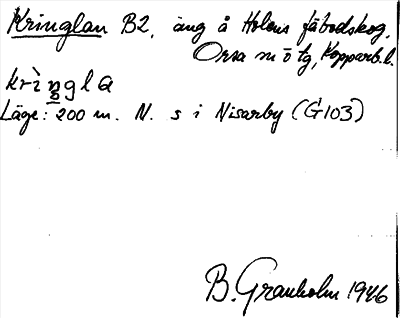 Kringlan B2, äng å Holens fäbodskog,
Orsa m ö tg, Kopparb. l.
krìŋgla
Läge: 200 m. N. s i Nisarby (G103)
B. Granholm 1946